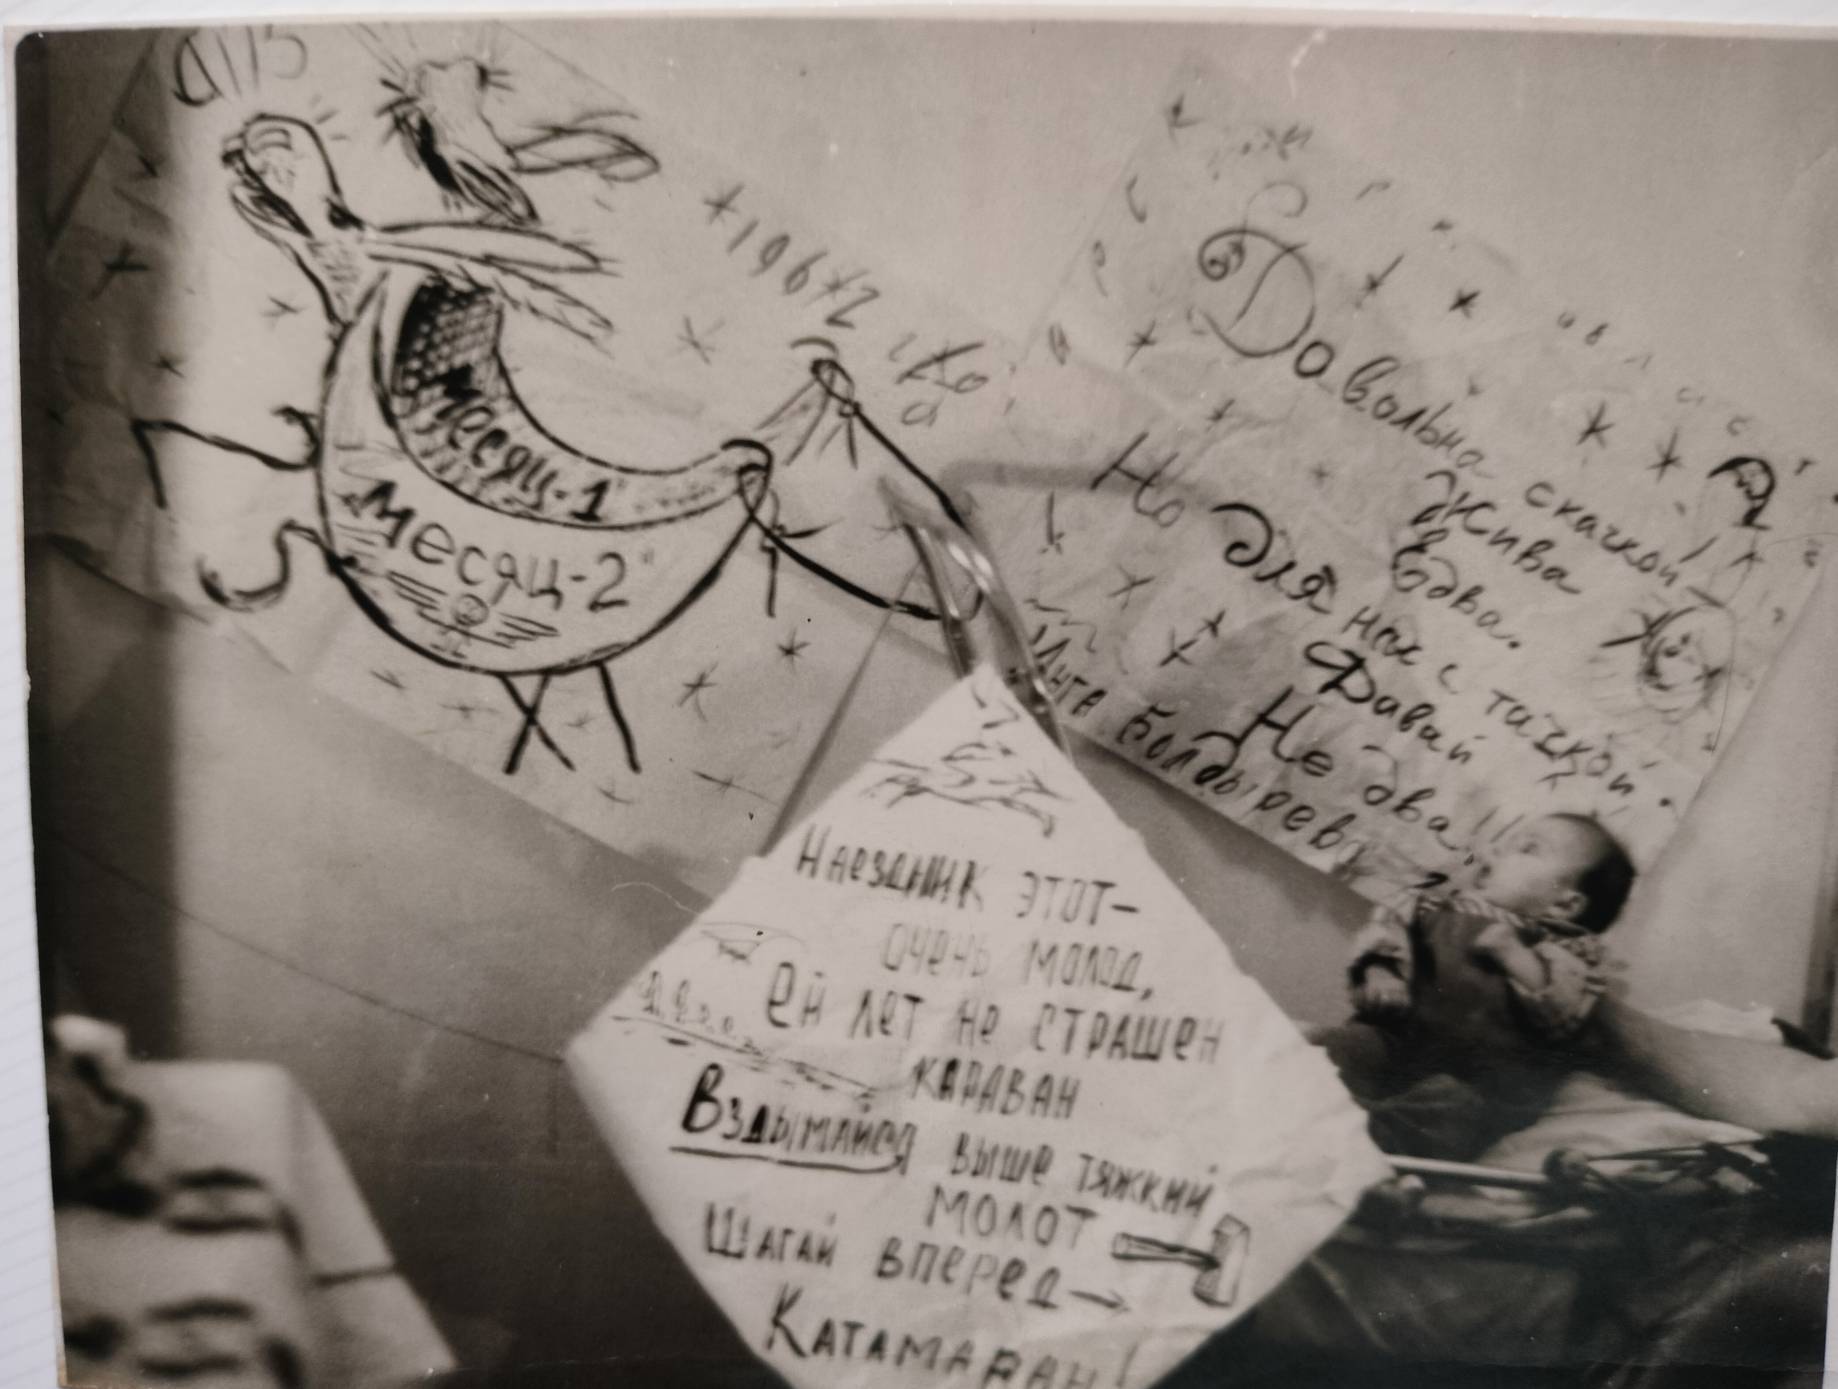 "Месяц-1"
"Месяц-2"
Давольна скачкой
Жива
Едва.
Но для нас с тачкой
Давай
Не два!!
Инга Болдырева
Наездник этот-
очень молод,
Ей лет не страшен
караван
Вздымайся выше тяжкий
молот
Шагай вперед→
Катамаран!